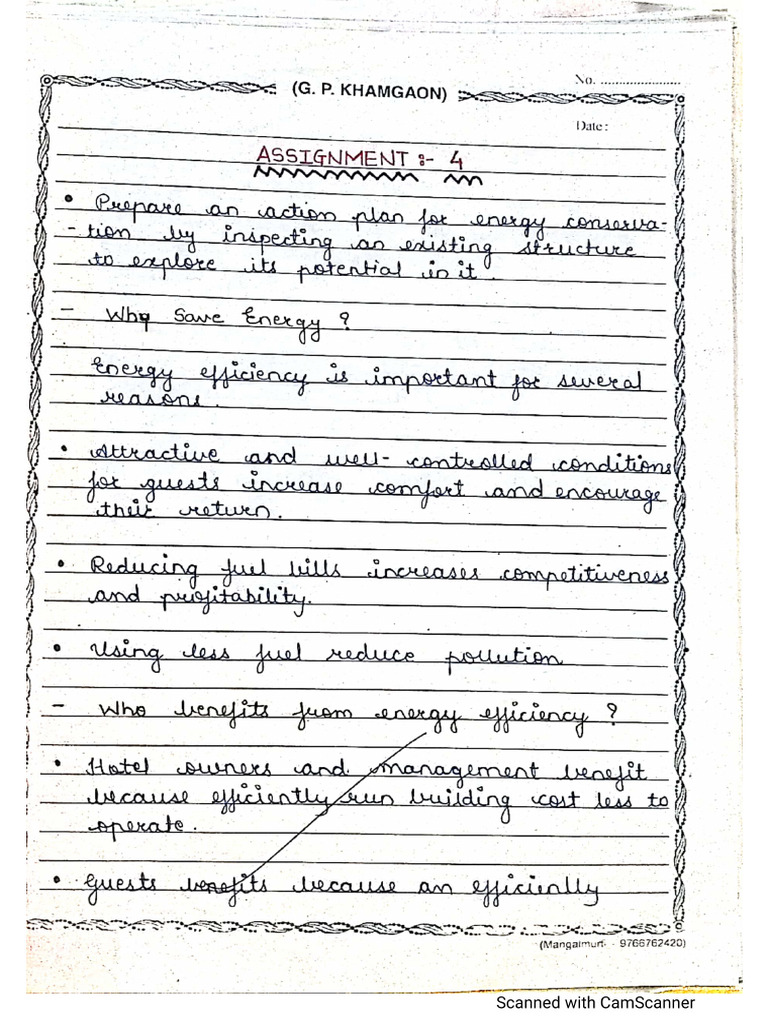 No. ........................
(G. P. KHAMGAON)
Date :
ASSIGNMENT :- 4
• Prepare an action plan for energy conserva-
- tion by inspecting an existing structure
to explore its potential in it.
- Why Save Energy ?
Energy efficiency is important for several
reasons.
• Attractive and well- controlled conditions
for guests increase comfort and encourage
their return.
• Reducing fuel bills increases competitiveness
and profitability.
• Using less fuel reduce pollution
- Who benefits from energy efficiency ?
• Hotel owners and management benefit
because efficiently run building cost less to
operate.
• Guests benefits because an efficiently
(Mangalmurti - 9766762420)
Scanned with CamScanner